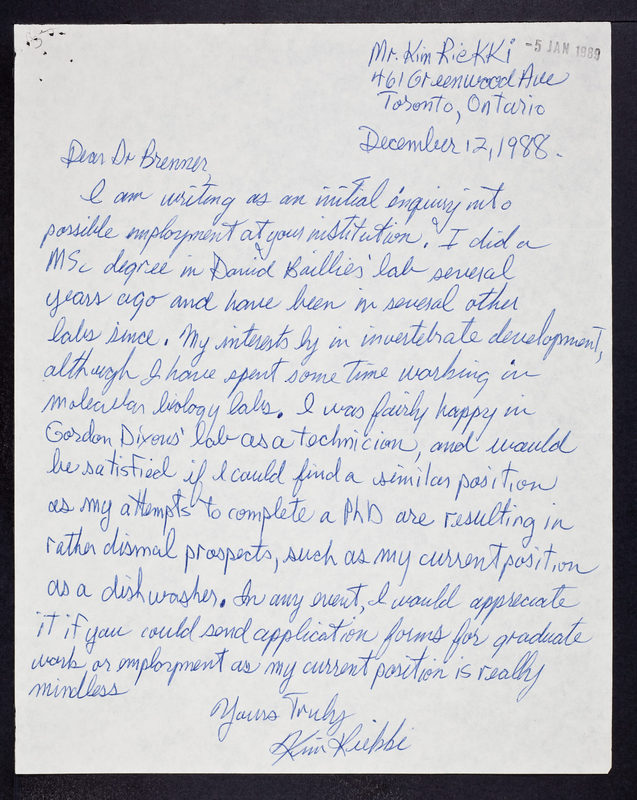 Mr. Kim Riekki
-5 JAN 1989
461 Greenwood Ave
Toronto, Ontario
December 12, 1988.
Dear Dr Brenner,
I am writing as an initial enquiry into
possible employment at your institution. I did a
MSc degree in David Baillies' lab several
years ago and have been in several other
labs since. My interests ly in invertebrate development,
although I have spent some time working in
molecular biology labs. I was fairly happy in
Gordon Dixons' lab as a technicion, and would
be satisfied if I could find a similar position
as my attempts to complete a PhD are resulting in
rather dismal prospects, such as my current position
as a dishwasher. In any event, I would appreciate
it if you could send application forms for graduate
work or employment as my current position is really
mindless
Yours Truly
Kim Riekki